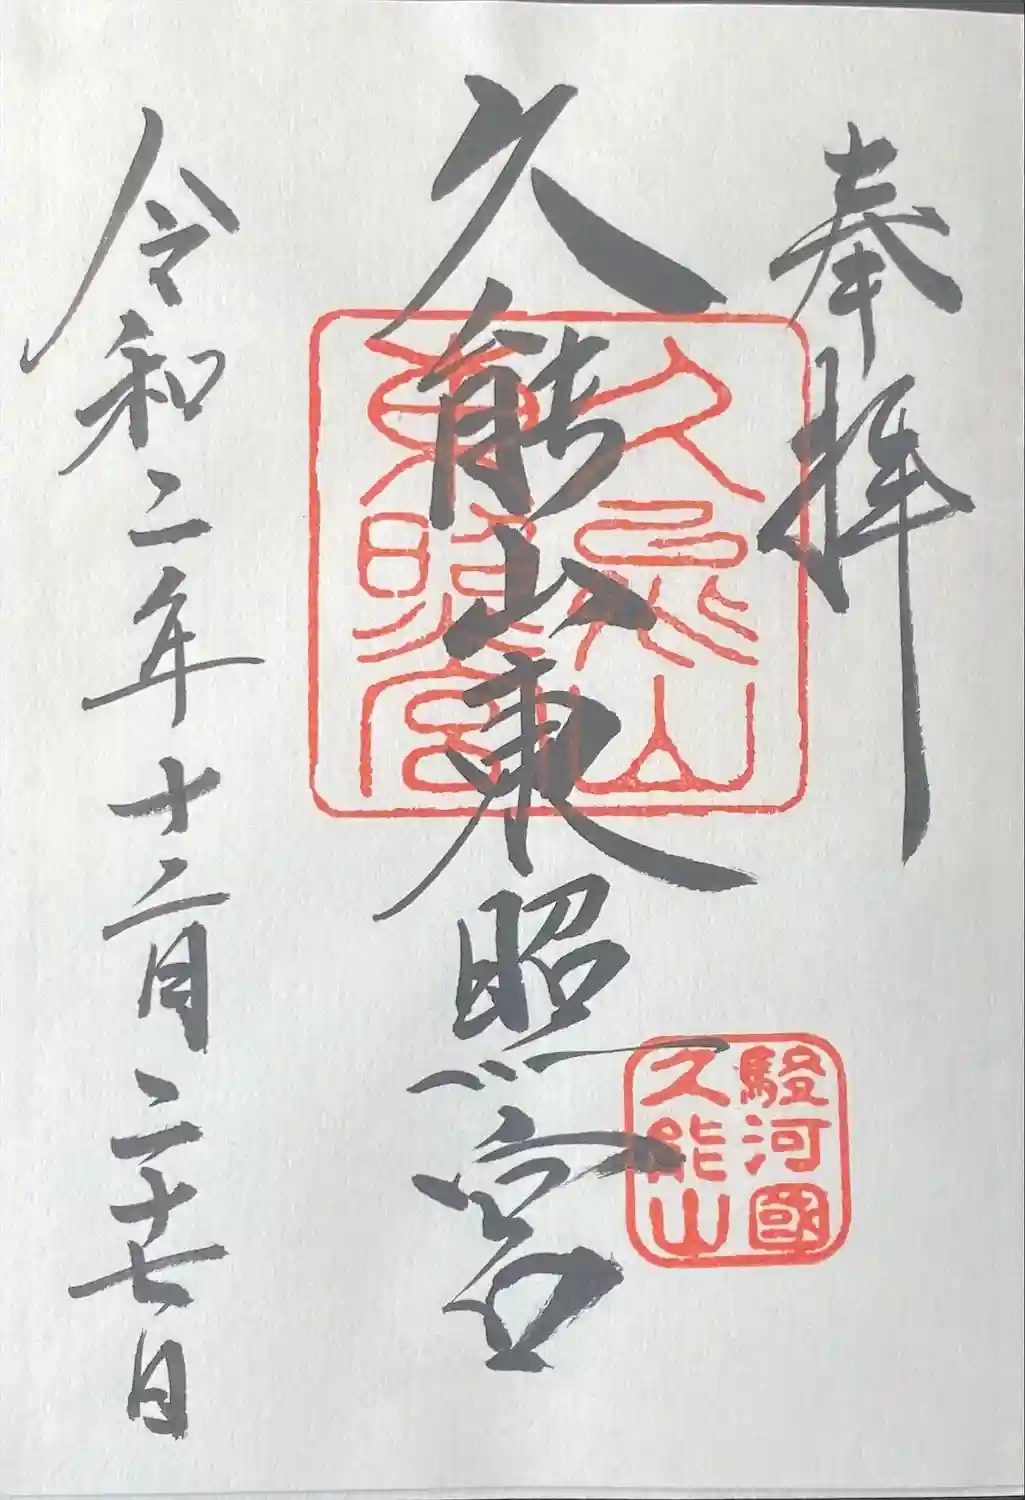 奉拝
久能山東照宮
久能山
東照宮
駿河國
久能山
令和二年十二月二十七日